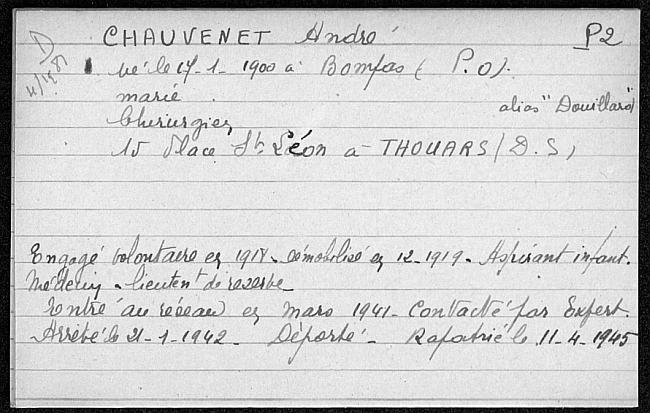 D
CHAUVENET André P2
né le 17-1-1900 à Bompas (P.O).
marié
alias "Douillard"
Chirurgien
15 Place St Léon à THOUARS (D.S)
Engagé volontaire en 1918 - démobilisé en 12-1919 - Aspirant infant.
Médecin - lieutent de réserve
Rentré au réseau en mars 1941 - Contacté par Expert.
Arrêté le 21-1-1942 - Déporté - Rapatrié le 11-4-1945